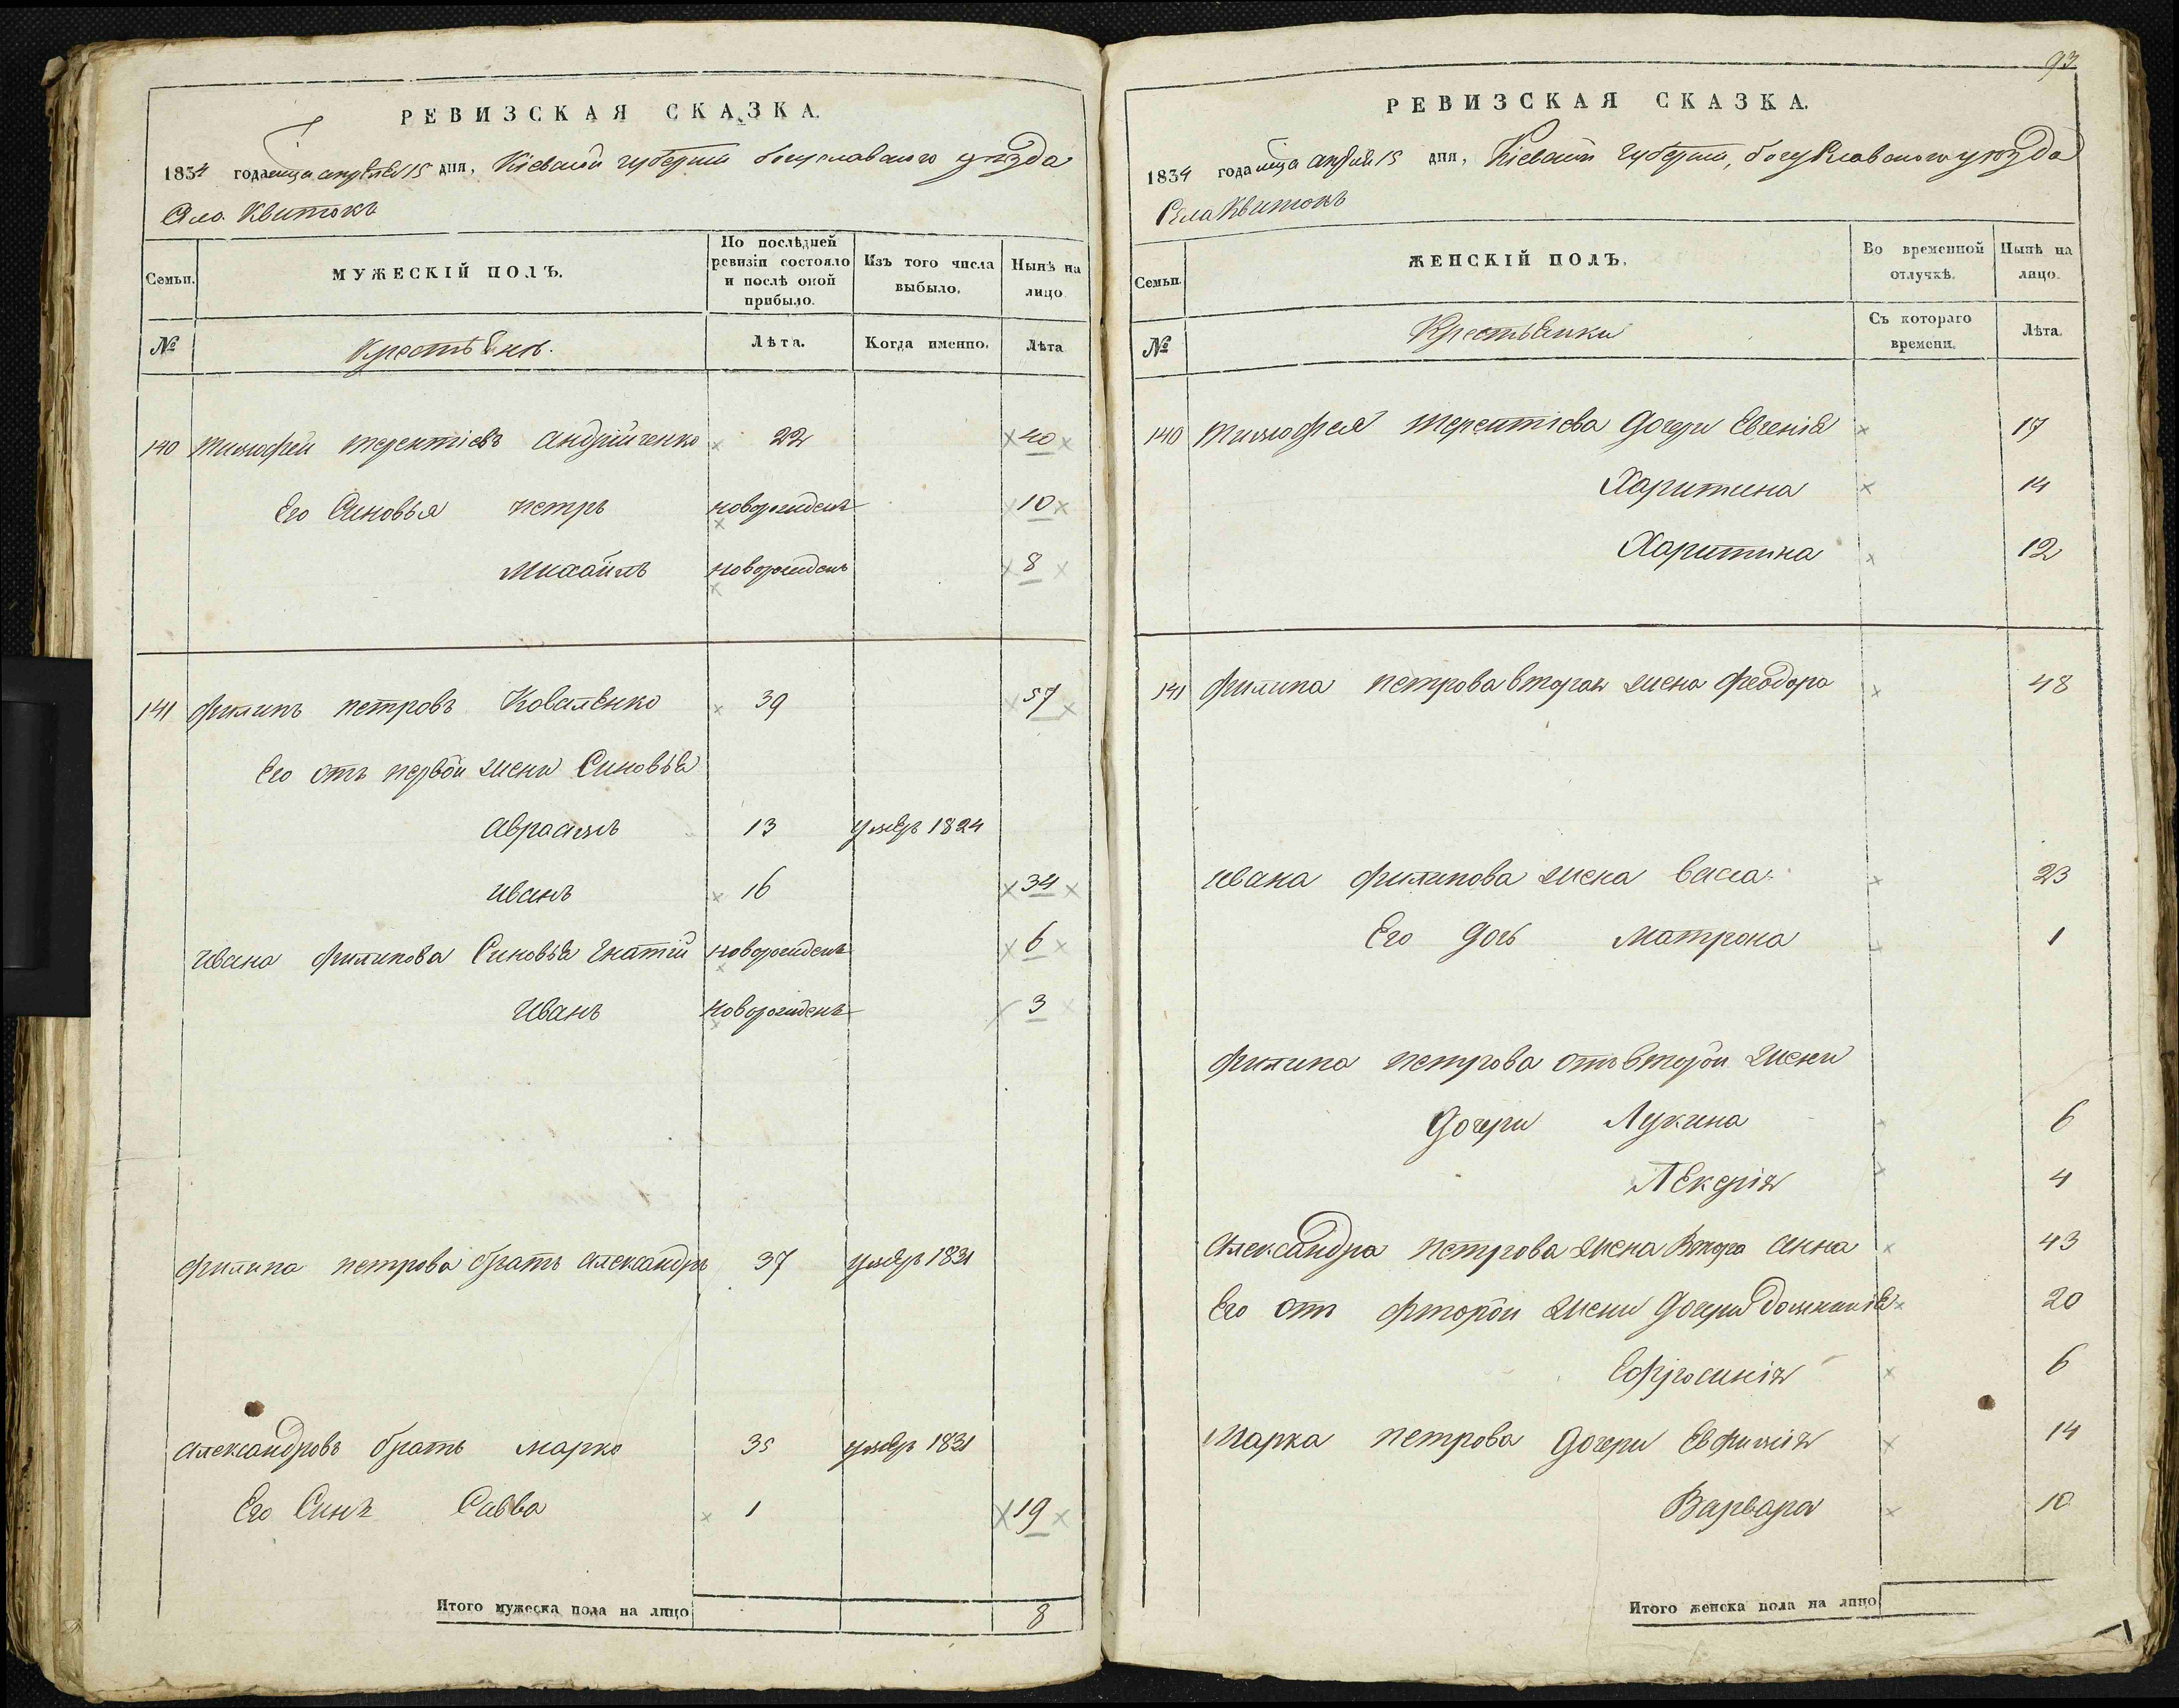 РЕВИЗСКАЯ СКАЗКА.
1834 года мца апреля 15 дня, Кіевской губерніи богуславского уѣзда
Села Квитокъ
Семьи.
МУЖЕСКІЙ ПОЛЪ.
По послѣдней ревизіи состояло и послѣ оной прибыло.
Изъ того числа выбыло.
Нынѣ на лицо.
№
Крестьяне.
Лѣта.
Когда именно.
Лѣта
140 тимофей терентіевъ андрійченко 22 40
Его Синовья петръ новорожденъ 10
михайлъ новорожденъ 8
141 филипъ петровъ Коваленко 39 57
Его отъ первой жени Синовья
аврамъ 13 умеръ 1824
иванъ 16 34
ивана филипова Синовья игнатій новорожденъ 6
иванъ новорожденъ 3
филипа петрова братъ александръ 37 умеръ 1831
александровъ братъ марко 35 умеръ 1831
Его Синъ Савва 1 19
Итого мужеска пола на лицо 8
93
РЕВИЗСКАЯ СКАЗКА.
1834 года мца апреля 15 дня, Кіевской губерніи, богуславского уѣзда
Села Квитокъ
Семьи.
ЖЕНСКІЙ ПОЛЪ.
Во временной отлучкѣ.
Нынѣ на лицо.
№
Крестьянки
Съ котораго времени.
Лѣта.
140 тимофея терентіева дочери Евгенія 17
Харитина 14
Харитина 12
141 филипа петрова вторая жена феодора 48
ивана филипова жена васса 23
Его дочь матрона 1
филипа петрова отъ второй жени
дочери Лукина 6
Лекерія 4
александра петрова жена втора анна 43
Его отъ фторой жени дочери домникія 20
Ефросинія 6
марка петрова дочери Евфимія 14
Варвара 10
Итого женска пола на лицо